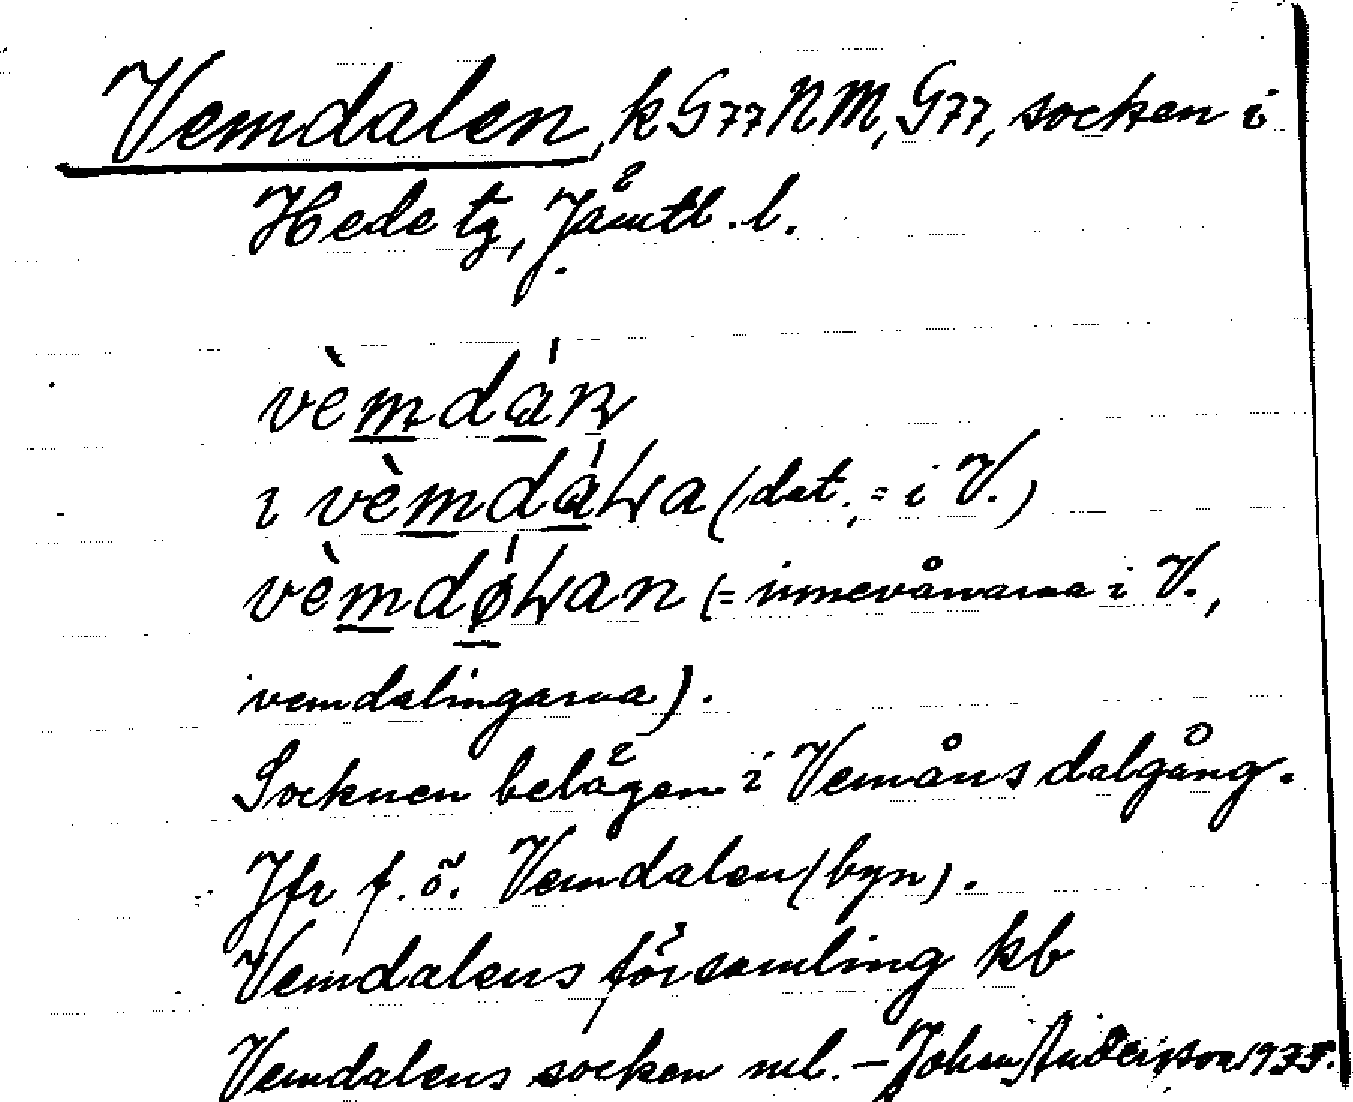 Vemdalen, k G77 NM, G77, socken i
Hede tg, Jämtl. l.
vèmdán
ı vèmdáLra (dat., = i V.)
vèmdǿLran (= innevånarna i V.,
vemdalingarna).
Socknen belägen i Vemåns dalgång.
Jfr f. ö. Vemdalen (byn).
Vemdalens församling kb
Vemdalens socken ml. –